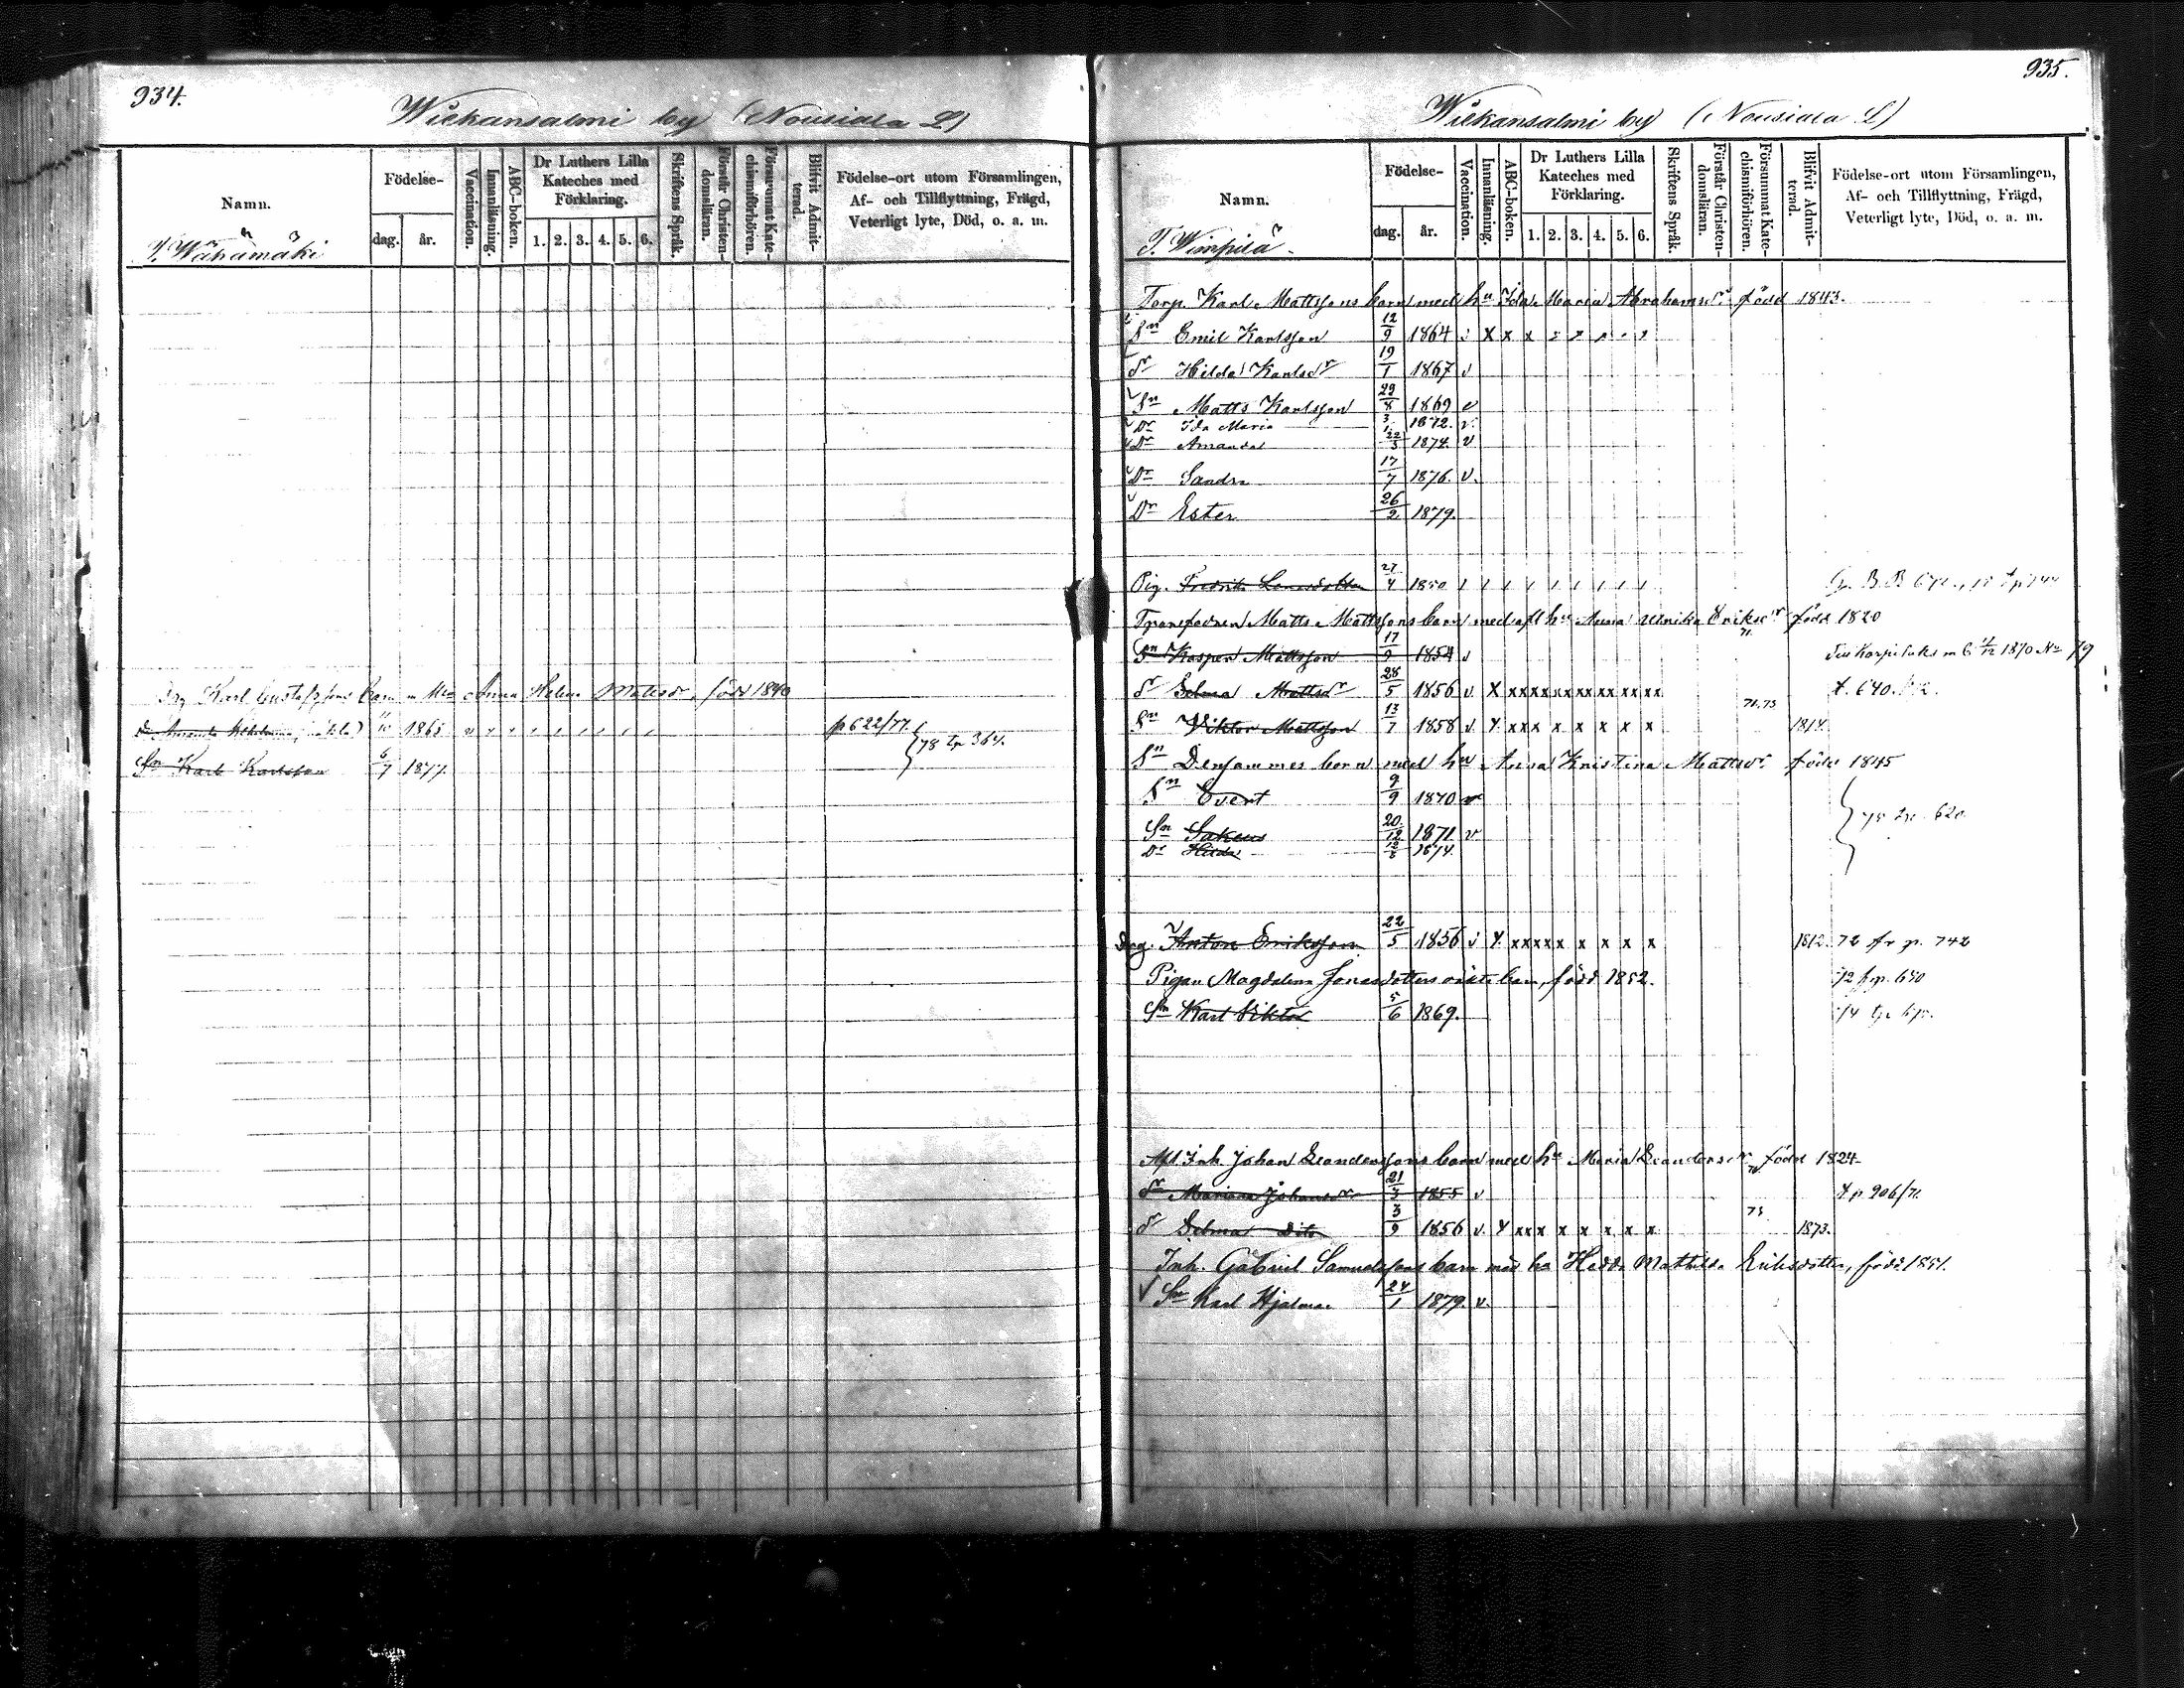 934.
Wiekansalmi by (Nousiala L)
Namn.
Födelse-
dag.
år.
Vaccination.
Innanläsning.
ABC-boken.
Dr Luthers Lilla
Kateches med
Förklaring.
1. 2. 3. 4. 5. 6.
Skriftens Språk.
Förstår Christen-
domsläran.
Försummat Kate-
chismiförhören.
Blifvit Admit-
terad.
Födelse-ort utom Församlingen,
Af- och Tillflyttning, Frägd,
Veterligt lyte, Död, o. a. m.
T. Wähämäki
Karl Gustafssons barn m Anna Helena Matsdr, född 1840
1865 p 622/77.
78 tp 364.
Sn Karl Karlsson 6/7 1877.
935.
Wiekansalmi by (Nousiala L)
Namn.
Födelse-
dag.
år.
Vaccination.
Innanläsning.
ABC-boken.
Dr Luthers Lilla
Kateches med
Förklaring.
1. 2. 3. 4. 5. 6.
Skriftens Språk.
Förstår Christen-
domsläran.
Försummat Kate-
chismiförhören.
Blifvit Admit-
terad.
Födelse-ort utom Församlingen,
Af- och Tillflyttning, Frägd,
Veterligt lyte, Död, o. a. m.
T. Wimpilä
Torp. Karl Mattssons barn med hu Ida Maria Abrahamsdr född 1843.
Sn Emil Karlsson 12/9 1864 v x x x
Dr Hilda Karlsdr 19/1 1867 v
Sn Matts Karlsson 29/8 1869 v
Dr Ida Maria 1872. v.
Dr Amanda 22/5 1874. v
Dr Sandra 17/7 1876. v.
Dr Ester 26/2 1879.
Pig. Fredrika 27/4 1850
Matts Mattssons barn med afl hu Anna Ulrika Eriksdr född 1820
Sn Kasper Mattsson 17/9 1854 v
Dr Selma Mattsdr 28/5 1856 v x xxxx xxxx xx xx xx
Sn Viktor Mattsson 13/7 1858 v x xxx x x x x x 1874.
Densammes barn med hu Anna Kristina Mattsdr född 1845
Sn Evert 9/9 1870 v
Sn Sakeus 20/12 1871. v
Dr Hilda 1874.
Drg. Anton Eriksson 22/5 1856 v x xxxxx x x x x 72 fr p. 742
Pigan Magdalena Jonasdotters oäkta barn, född 1852.
Sn Karl Viktor 5/6 1869.
Afl. Inh. Johan Leanderssons barn med hu Maria Leandersdr född 1824
Dr Mariana Johansdr 21/3 1855 v
Dr Selma Dito 3/9 1856 v x xxx x x x x x 73 1873.
Inh. Gabriel Samuelssons barn med hu Hedda Mathilda Eriksdotter, född 1851.
Sn Karl Hjalmar 24/1 1879. v.